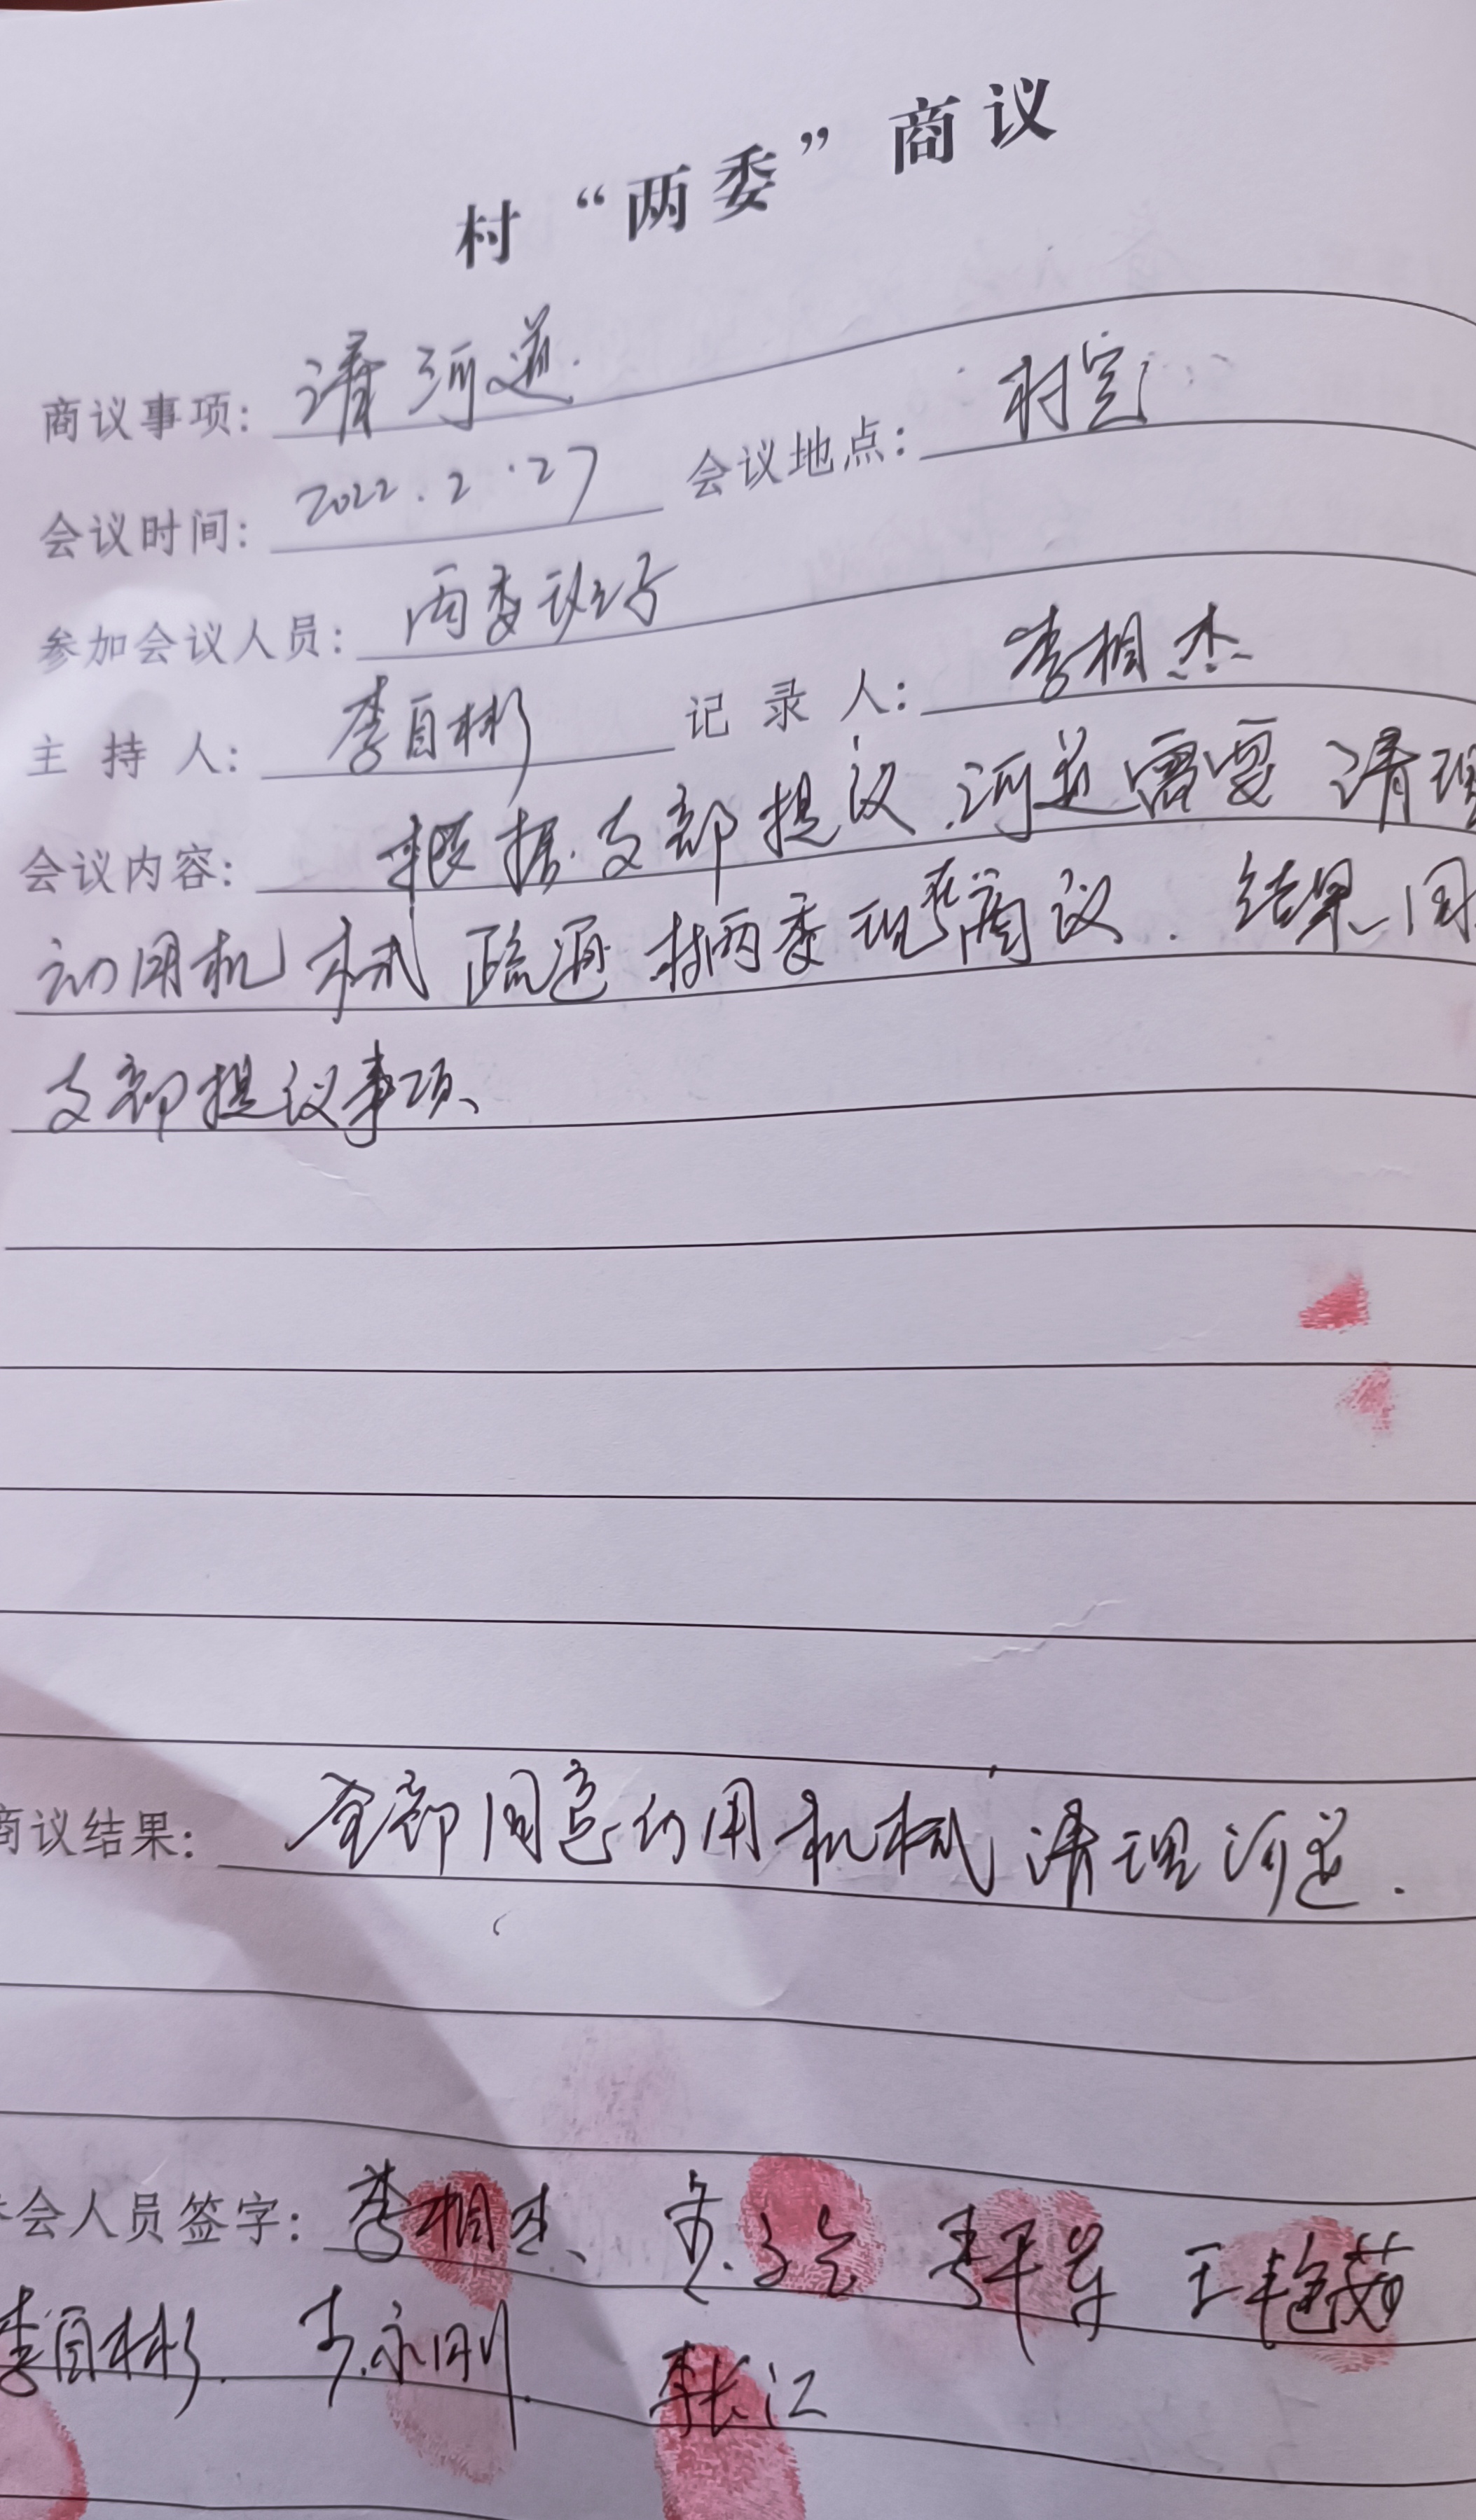 村“两委”商议
商议事项：清河道
会议时间：2022.2.27 会议地点：村室
参加会议人员：两委班子
主持人：李自彬 记录人：李相杰
会议内容：根据支部提议.河道需要清理
动用机械疏通.村两委现来商议.结果同
支部提议事项、
商议结果：全部同意动用机械清理河道.
会人员签字：李相杰、 李平军 王艳茹
李自彬. 李永刚. 李长江